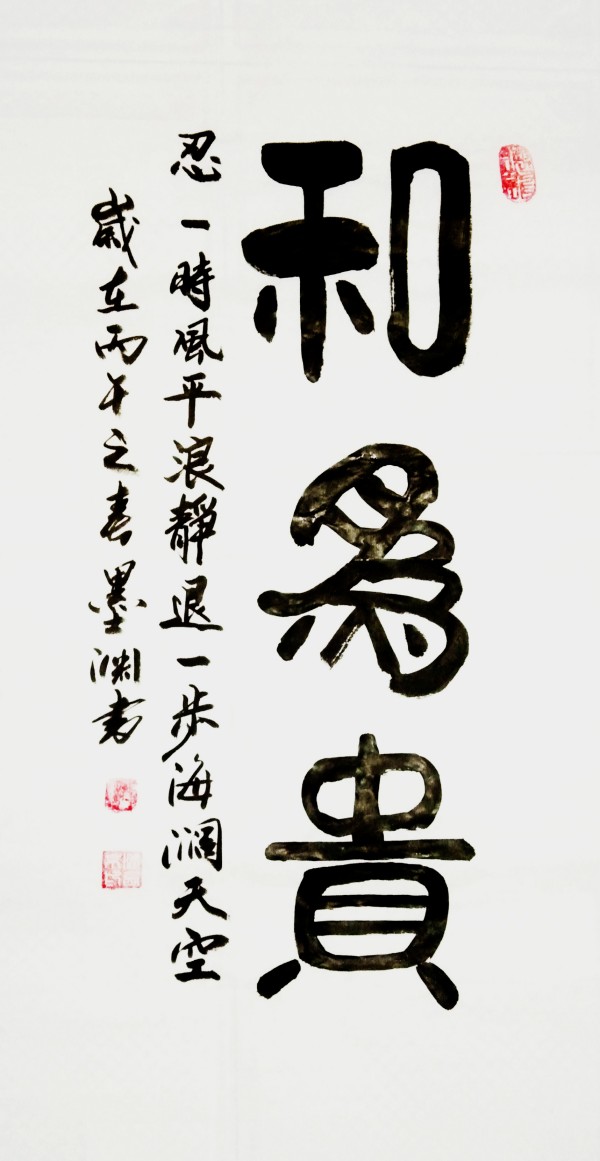 和為貴
忍一時風平浪靜退一步海濶天空
歲在丙午之春墨渊書